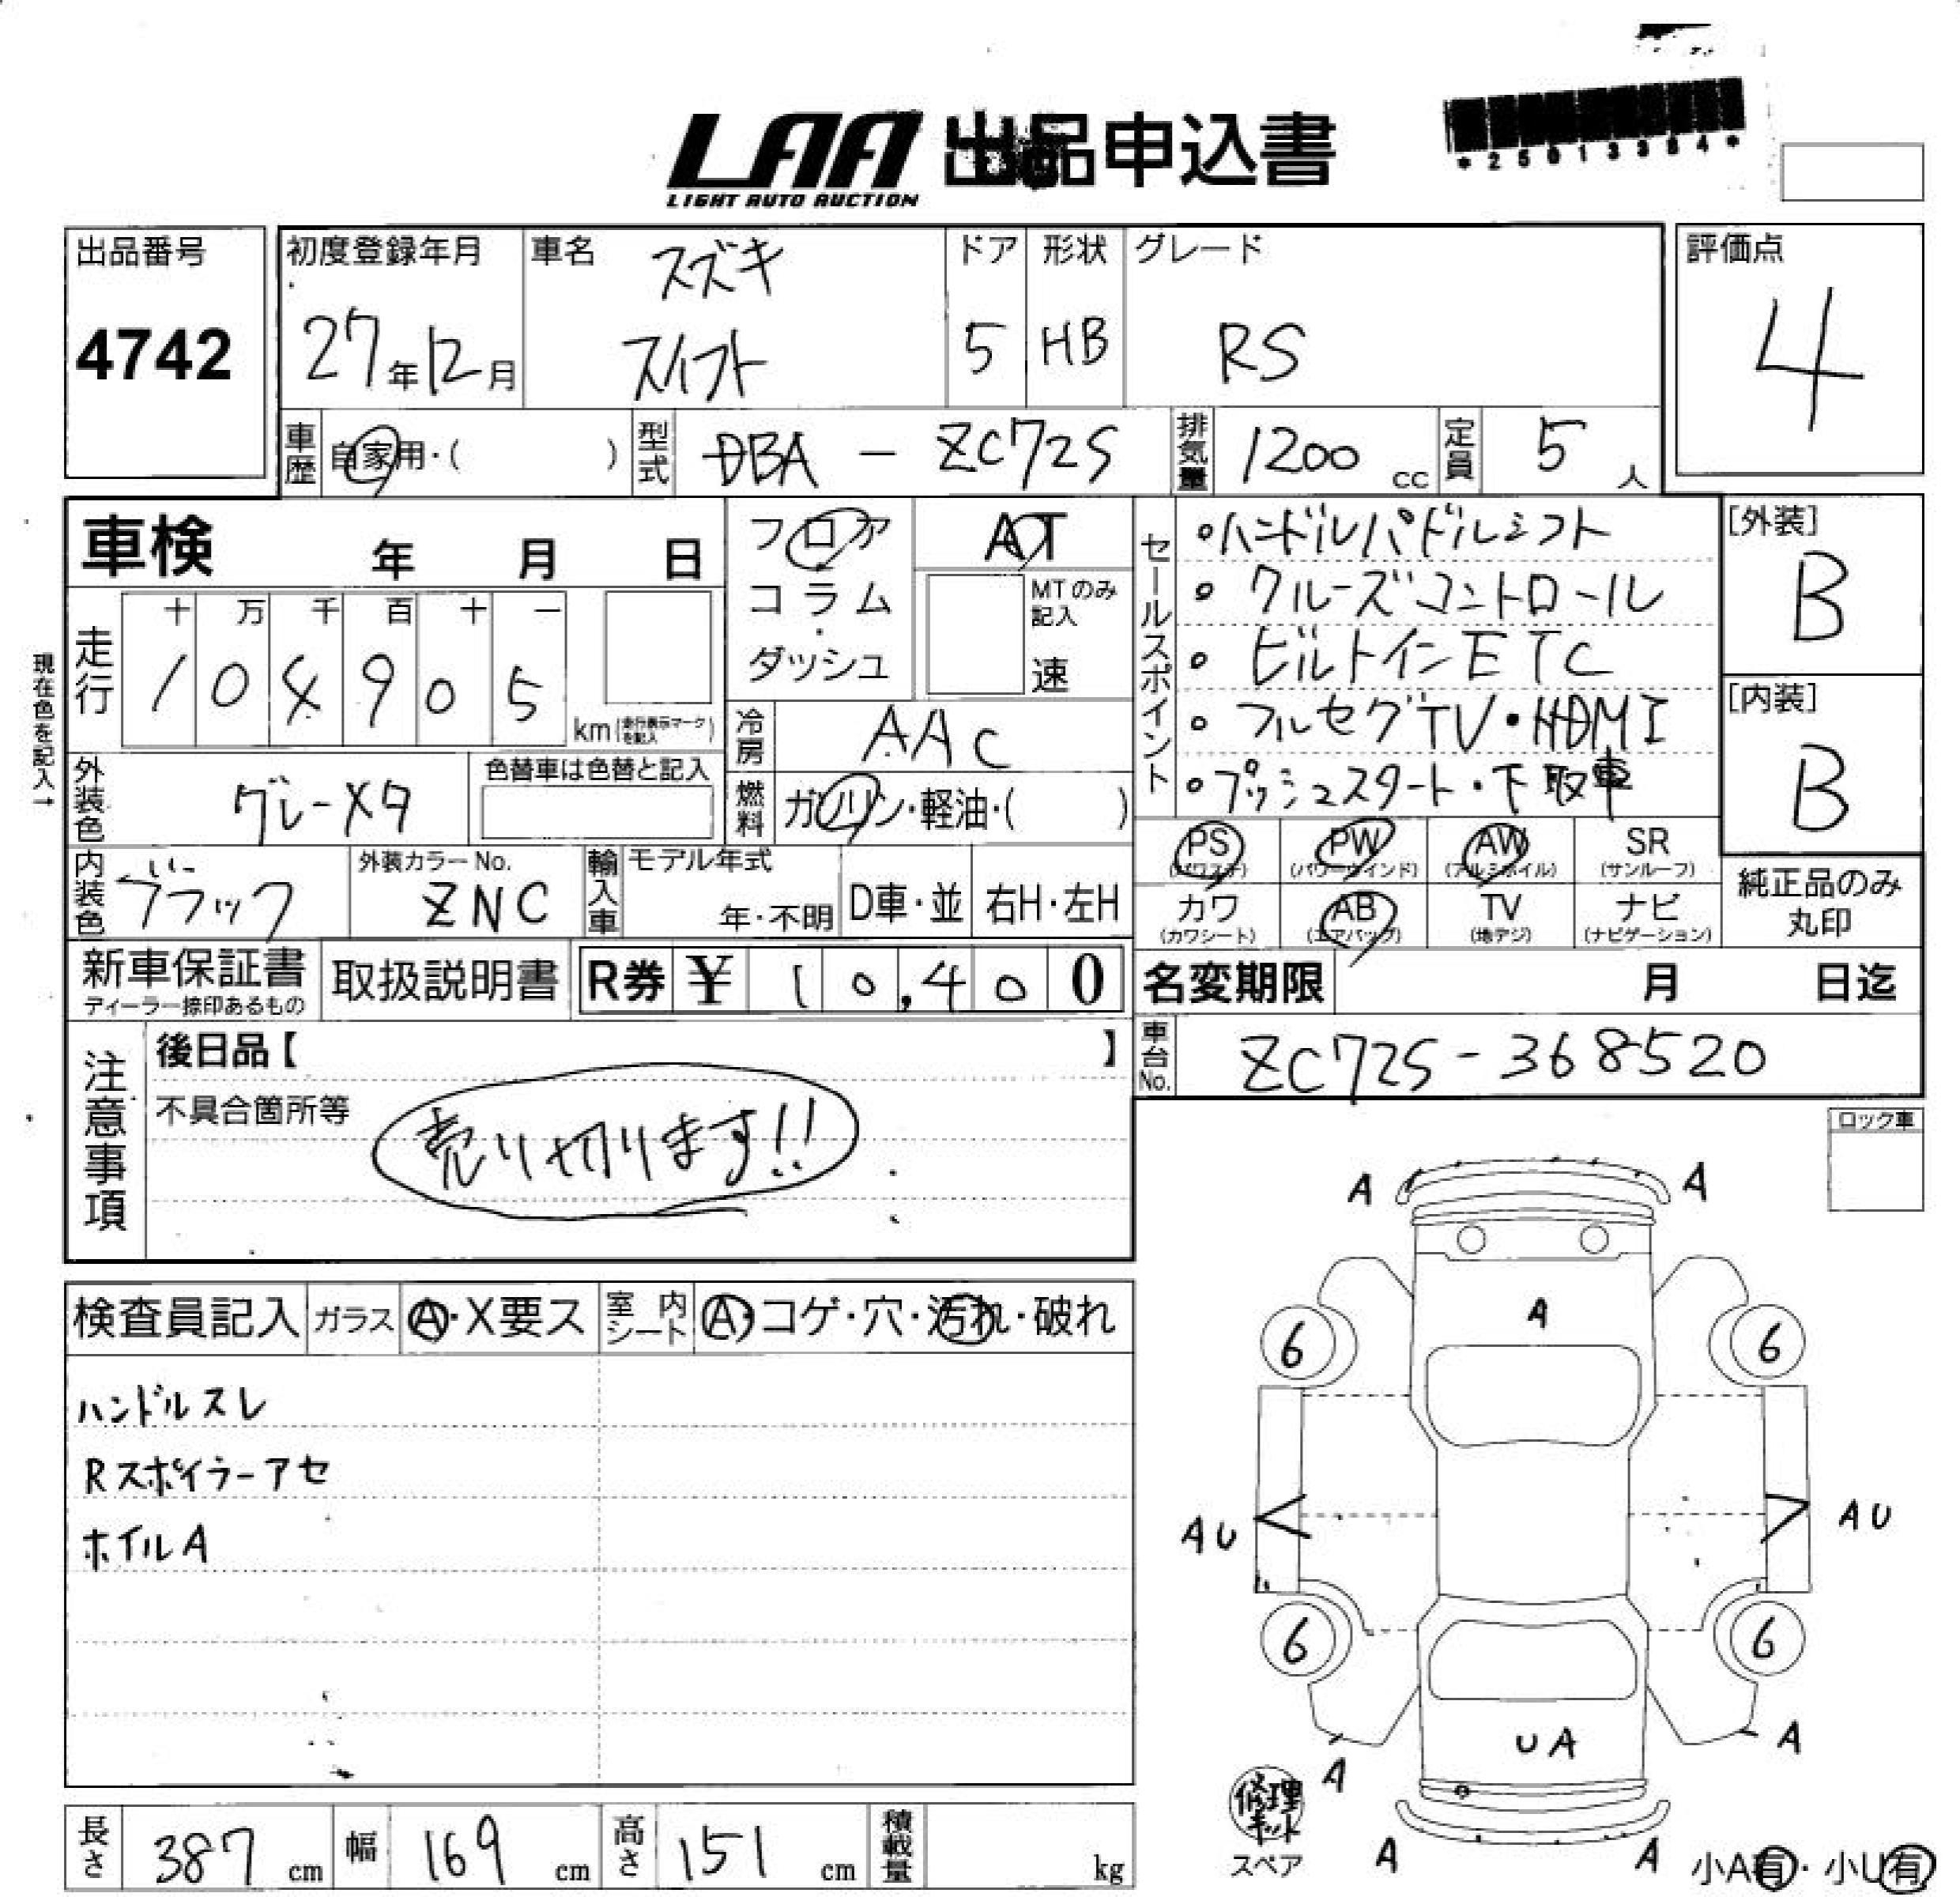 LAA 出品申込書
LIGHT AUTO AUCTION
*25013384*
出品番号
4742
初度登録年月
27年12月
車名 スズキ
スイフト
ドア
5
形状
HB
グレード
RS
評価点
4
車歴 自家用・( )
型式 DBA - ZC72S
排気量 1200 cc
定員 5 人
車検 年 月 日
フロア
コラム
・
ダッシュ
AT
MTのみ記入
速
走行 十 万 千 百 十 一
104905
km(走行表示マークを記入)
現在色を記入→
冷房 AAC
燃料 ガソリン・軽油・( )
外装色 グレーメタ
色替車は色替と記入
内装色 ブラック
外装カラーNo.
ZNC
輸入車 モデル年式
年・不明
D車・並
右H・左H
セールスポイント
・ハンドルパドルシフト
・クルーズコントロール
・ビルトインETC
・フルセグTV・HDMI
・プッシュスタート・下取車
[外装]
B
[内装]
B
PS (パワステ)
PW (パワーウインド)
AW (アルミホイル)
SR (サンルーフ)
カワ (カワシート)
AB (エアバッグ)
TV (地デジ)
ナビ (ナビゲーション)
純正品のみ
丸印
新車保証書
ディーラー捺印あるもの
取扱説明書
R券 ¥ 10,400
名変期限 月 日迄
車台No. ZC72S-368520
注意事項
後日品【 】
不具合箇所等
売り切ります!!
ロック車
検査員記入
ガラス A・X要ス
室内シート A・コゲ・穴・汚れ・破れ
ハンドルスレ
Rスポイラーアセ
ホイルA
A A
A
6 6
AU AU
6 6
UA
A A
A A
修理キット
スペア
小A有・小U有
長さ 387 cm
幅 169 cm
高さ 151 cm
積載量 kg